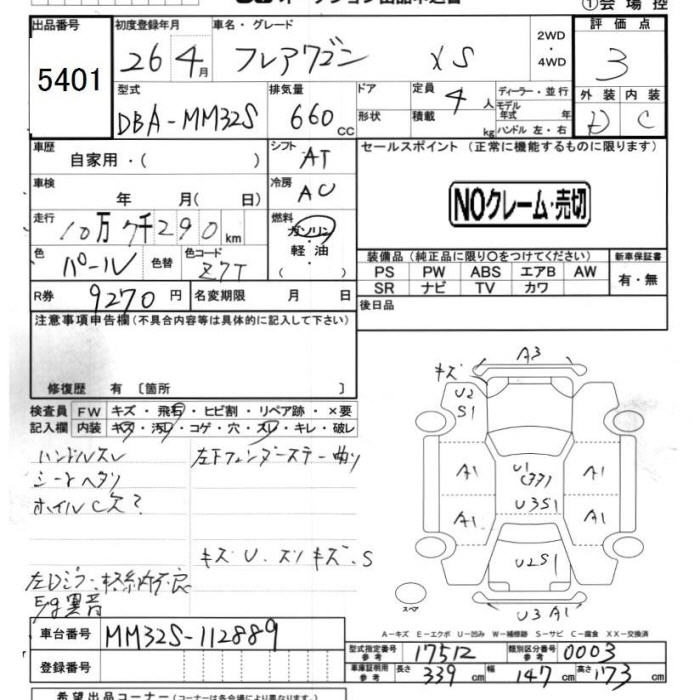 出品番号 5401
初度登録年月 26 4月
車名・グレード フレアワゴン XS
2WD・4WD
評価点 3
型式 DBA-MM32S
排気量 660 CC
ドア 形状
定員 4人
積載 kg
ディーラー・並行
モデル年式 年
ハンドル 左・右
外装 D 内装 C
車歴 自家用・( )
シフト AT
セールスポイント (正常に機能するものに限ります)
車検 年 月( 日)
冷房 AC
NOクレーム・売切
走行 10万7千290km
燃料 ガソリン・軽油・( )
色 パール 色替
色コード Z7T
装備品 (純正品に限り〇をつけてください)
新車保証書
PS PW ABS エアB AW
有・無
SR ナビ TV カワ
R券 9270円
名変期限 月 日
後日品
注意事項申告欄(不具合内容等は具体的に記入して下さい)
修復歴 有 〔箇所 〕
検査員 FW キズ・飛石・ヒビ割・リペア跡・×要
記入欄 内装 キズ・汚レ・コゲ・穴・スレ・キレ・破レ
ハンドルスレ 左下フェンダーステー曲り
シートヘタリ
ホイルC欠?
キズ U. ズリキズ. S
左Dミラー格納不良
E/g異音
A3
キズ
U2
S1
A1
U1
A1
A1
U3S1
A1
U2S1
U3 A1
スペア
A-キズ E-エクボ U-凹み W-補修跡 S-サビ C-腐食 XX-交換済
車台番号 MM32S-112889
型式指定番号 参考 17512
類別区分番号 参考 0003
登録番号
車庫証明用 参考 長さ 339cm 幅 147cm 高さ 173cm
希望出品コーナー